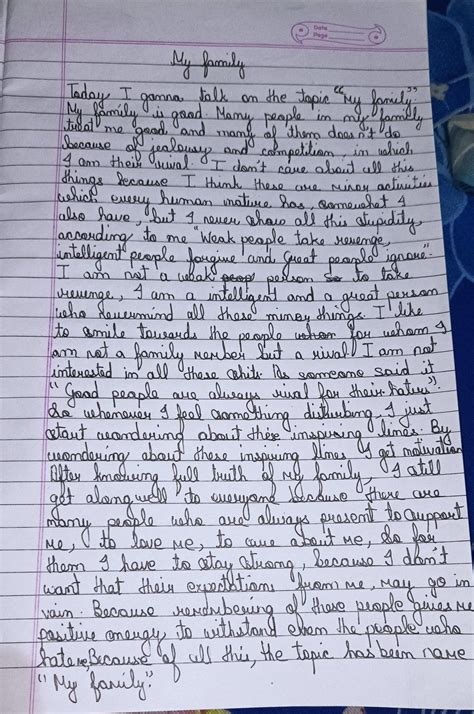 Date
Page
My family
Today I gonna talk on the topic "My family".
My family is good. Many people in my family
treat me good and many of them does n't do
because of jealousy and competition, in which
I am their rival. I don't care about all this
things because I think these are minor activities
which every human mature has, somewhat I
also have, but I never show all this stupidity,
according to me "Weak people take revenge,
intelligent people forgive and Great people ignore".
I am not a weak person to take
revenge, I am a intelligent and a great person
who all these miney things. I like
to smile towards the people for whom I
am not a family member but a rival. I am not
interested in all these As someone said it
"Good people are always rival for their haters".
So whenever I feel something disturbing, I just
start wondering about these inspiring lines. By
wondering about these inspiring lines I get motivation
After knowing full truth of my family, I still
get along well to everyone because there are
many people who are always present to support
me, to love me, to care about me, So for
them I have to stay strong, because I don't
want that their expectations from me, may go in
vain. Because remembering of these people gives me
positive energy to withstand even the people who
hate me. Because of all this, the topic has been name
"My family".